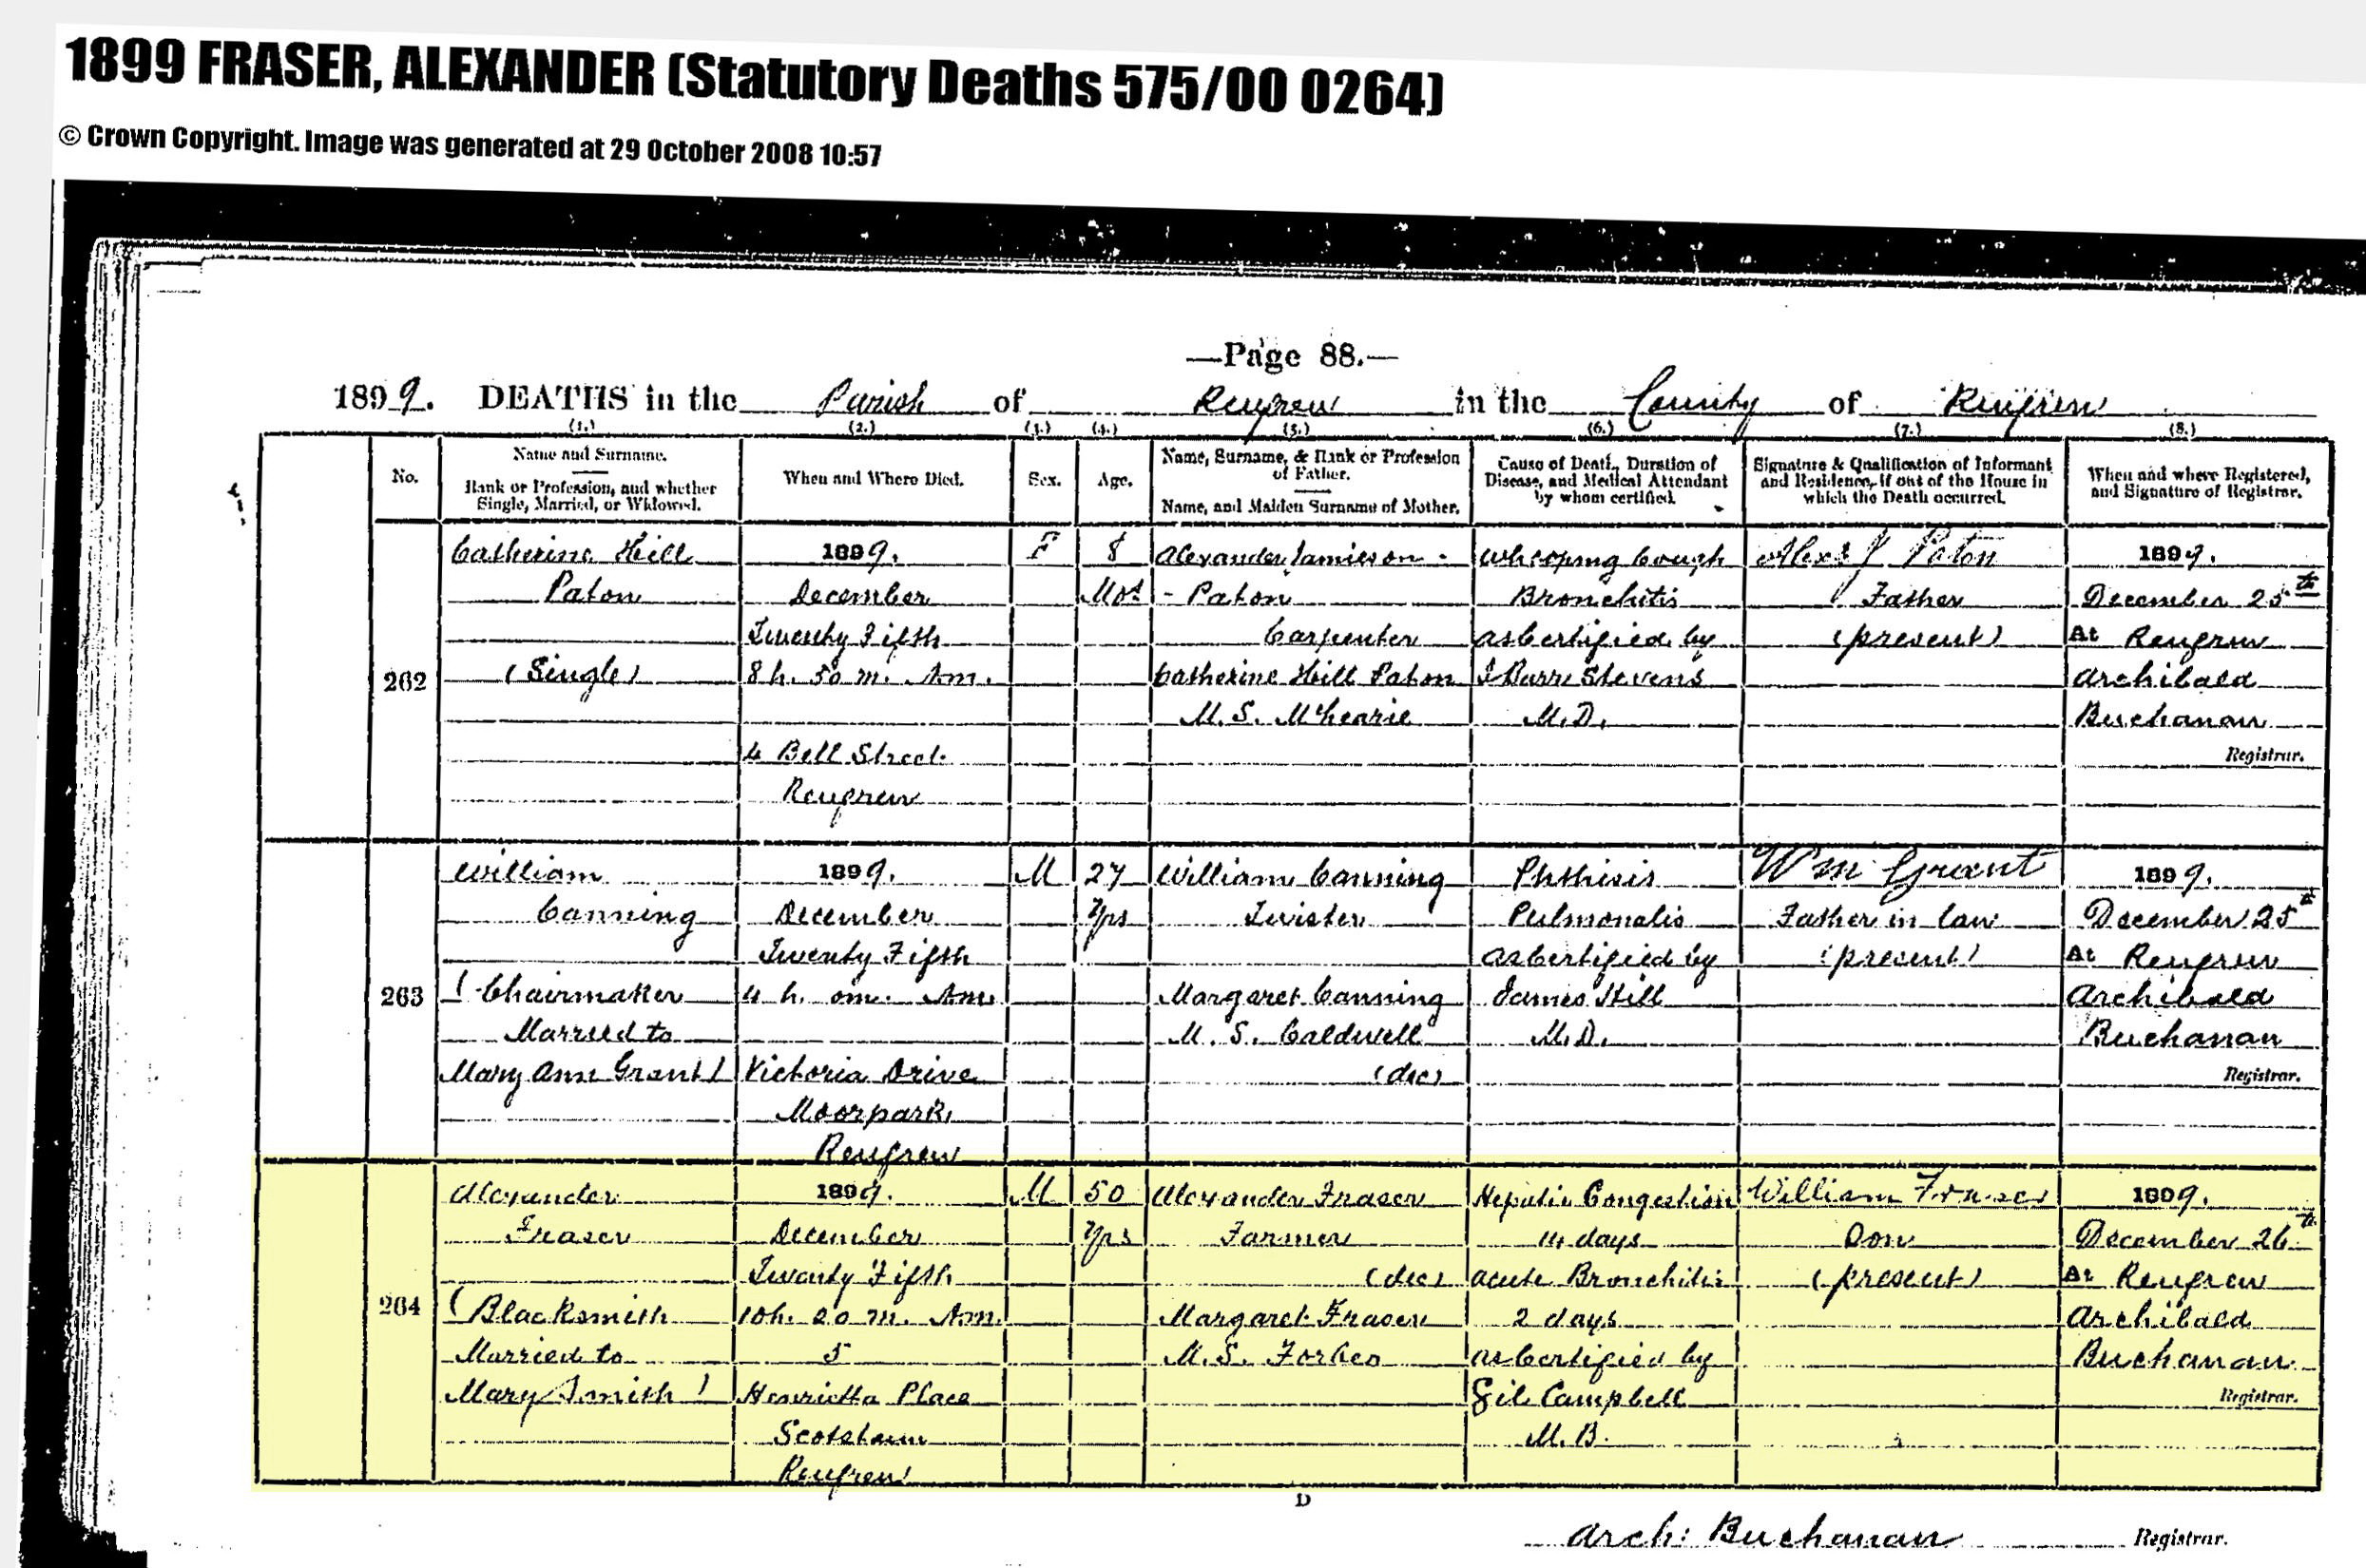 1899 FRASER, ALEXANDER (Statutory Deaths 575/00 0264)
© Crown Copyright. Image was generated at 29 October 2008 10:57
—Page 88.—
1899. DEATHS in the Parish of Renfrew in the County of Renfrew
(1.) (2.) (3.) (4.) (5.) (6.) (7.) (8.)
No.
Name and Surname.
Rank or Profession, and whether
Single, Married, or Widowed.
When and Where Died.
Sex.
Age.
Name, Surname, & Rank or Profession
of Father.
Name, and Maiden Surname of Mother.
Cause of Death, Duration of
Disease, and Medical Attendant
by whom certified.
Signature & Qualification of Informant
and Residence, if out of the House in
which the Death occurred.
When and where Registered,
and Signature of Registrar.
262
Catherine Hill
Paton
(Single)
1899.
December
Twenty Fifth
8 h. 50 m. Am.
4 Bell Street
Renfrew
F
8
Mos
Alexander Jamieson -
- Paton
Carpenter
Catherine Hill Paton
M.S.
Whooping Cough
Bronchitis
as Certified by
Barr Stevens
M.D.
Paton
Father
(present)
1899.
December 25th
At Renfrew
Archibald
Buchanan
Registrar.
263
William
Canning
(Chairmaker
Married to
Mary Ann Grant)
1899.
December
Twenty Fifth
4 h. 0m. Am.
Victoria Drive
Moorpark
Renfrew
M
27
Yrs
William Canning
Twister
Margaret Canning
M.S. Caldwell
(dec)
Phthisis
Pulmonalis
as Certified by
James Hill
M.D.
Wm Grant
Father in law
(present)
1899.
December 25th
At Renfrew
Archibald
Buchanan
Registrar.
264
Alexander
Fraser
(Blacksmith
Married to
Mary Smith)
1899.
December
Twenty Fifth
10h. 20 m. Am.
5
Henrietta Place
Scotstoun
Renfrew
M
50
Yrs
Alexander Fraser
Farmer
(dec)
Margaret Fraser
M.S. Forbes
Hepatic Congestion
14 days
acute Bronchitis
2 days
as Certified by
Gil Campbell
M.B.
William Fraser
Son
(present)
1899.
December 26th
At Renfrew
Archibald
Buchanan
Registrar.
D
Arch: Buchanan Registrar.